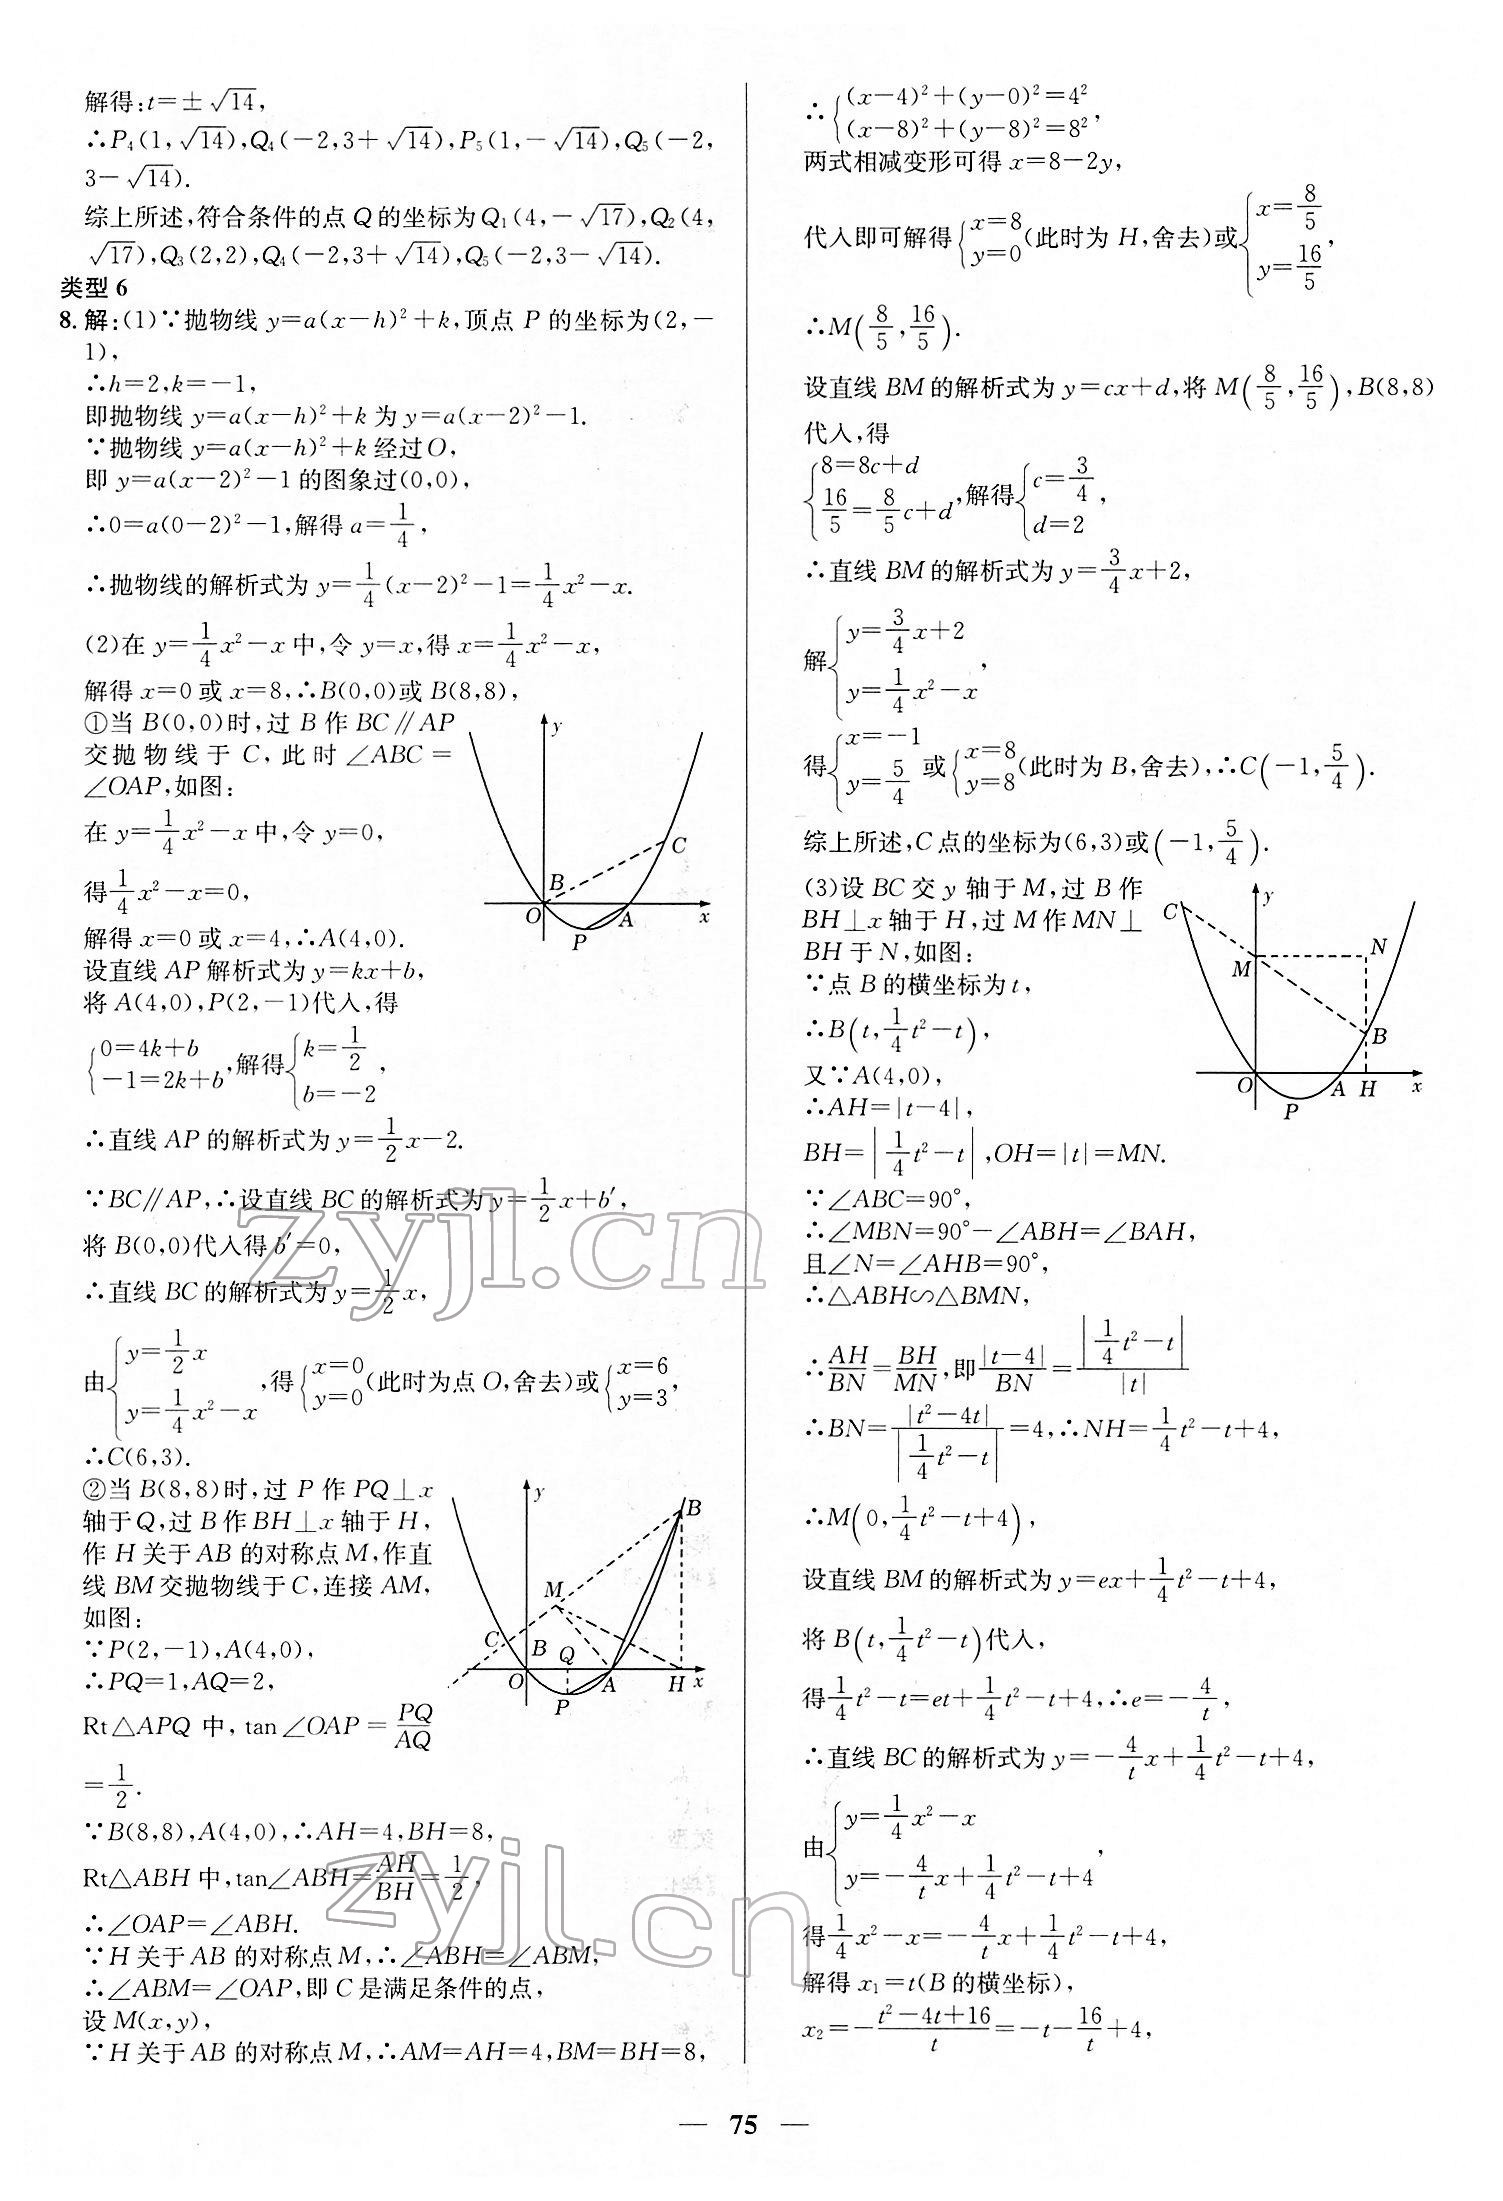 解得:t=±√14,
∴P₄(1,√14),Q₄(-2,3+√14),P₅(1,-√14),Q₅(-2,
3-√14).
综上所述,符合条件的点Q的坐标为Q₁(4,-√17),Q₂(4,
√17),Q₃(2,2),Q₄(-2,3+√14),Q₅(-2,3-√14).
类型6
8.解:(1)∵抛物线y=a(x-h)²+k,顶点P的坐标为(2,-
1),
∴h=2,k=-1,
即抛物线y=a(x-h)²+k为y=a(x-2)²-1.
∵抛物线y=a(x-h)²+k经过O,
即y=a(x-2)²-1的图象过(0,0),
∴0=a(0-2)²-1,解得a=1/4,
∴抛物线的解析式为y=1/4(x-2)²-1=1/4x²-x.
(2)在y=1/4x²-x中,令y=x,得x=1/4x²-x,
解得x=0或x=8,∴B(0,0)或B(8,8),
①当B(0,0)时,过B作BC∥AP
交抛物线于C,此时∠ABC=
∠OAP,如图:
在y=1/4x²-x中,令y=0,
得1/4x²-x=0,
解得x=0或x=4,∴A(4,0).
设直线AP解析式为y=kx+b,
将A(4,0),P(2,-1)代入,得
{0=4k+b
-1=2k+b,解得{k=1/2
b=-2,
∴直线AP的解析式为y=1/2x-2.
∵BC∥AP,∴设直线BC的解析式为y=1/2x+b′,
将B(0,0)代入得b′=0,
∴直线BC的解析式为y=1/2x,
由{y=1/2x
y=1/4x²-x,得{x=0
y=0(此时为点O,舍去)或{x=6
y=3,
∴C(6,3).
②当B(8,8)时,过P作PQ⊥x
轴于Q,过B作BH⊥x轴于H,
作H关于AB的对称点M,作直
线BM交抛物线于C,连接AM,
如图:
∵P(2,-1),A(4,0),
∴PQ=1,AQ=2,
Rt△APQ中,tan∠OAP=PQ/AQ
=1/2.
∵B(8,8),A(4,0),∴AH=4,BH=8,
Rt△ABH中,tan∠ABH=AH/BH=1/2,
∴∠OAP=∠ABH.
∵H关于AB的对称点M,∴∠ABH=∠ABM,
∴∠ABM=∠OAP,即C是满足条件的点,
设M(x,y),
∵H关于AB的对称点M,∴AM=AH=4,BM=BH=8,
y
C
B
O
A
x
P
y
B
M
C
B
Q
O
A
H
x
P
∴{(x-4)²+(y-0)²=4²
(x-8)²+(y-8)²=8²,
两式相减变形可得x=8-2y,
代入即可解得{x=8
y=0(此时为H,舍去)或{x=8/5
y=16/5,
∴M(8/5,16/5).
设直线BM的解析式为y=cx+d,将M(8/5,16/5),B(8,8)
代入,得
{8=8c+d
16/5=8/5c+d,解得{c=3/4
d=2,
∴直线BM的解析式为y=3/4x+2,
解{y=3/4x+2
y=1/4x²-x,
得{x=-1
y=5/4或{x=8
y=8(此时为B,舍去),∴C(-1,5/4).
综上所述,C点的坐标为(6,3)或(-1,5/4).
(3)设BC交y轴于M,过B作
BH⊥x轴于H,过M作MN⊥
BH于N,如图:
∵点B的横坐标为t,
∴B(t,1/4t²-t),
又∵A(4,0),
∴AH=|t-4|,
BH=|1/4t²-t|,OH=|t|=MN.
∵∠ABC=90°,
∴∠MBN=90°-∠ABH=∠BAH,
且∠N=∠AHB=90°,
∴△ABH∽△BMN,
∴AH/BN=BH/MN,即|t-4|/BN=|1/4t²-t|/|t|
∴BN=|t²-4t|/|1/4t²-t|=4,∴NH=1/4t²-t+4,
∴M(0,1/4t²-t+4),
设直线BM的解析式为y=ex+1/4t²-t+4,
将B(t,1/4t²-t)代入,
得1/4t²-t=et+1/4t²-t+4,∴e=-4/t,
∴直线BC的解析式为y=-4/tx+1/4t²-t+4,
由{y=1/4x²-x
y=-4/tx+1/4t²-t+4,
得1/4x²-x=-4/tx+1/4t²-t+4,
解得x₁=t(B的横坐标),
x₂=-(t²-4t+16)/t=-t-16/t+4,
C
y
N
M
B
O
A
H
x
P
zyjl.cn
zyjl.cn
— 75 —